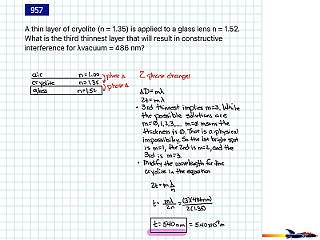 957
A thin layer of cryolite (n = 1.35) is applied to a glass lens n = 1.52.
What is the third thinnest layer that will result in constructive
interference for λvacuum = 486 nm?
air n=1.00
cryolite n=1.35
glass n=1.52
phase Δ
phase Δ
2 phase changes
ΔD=mλ
2t=mλ
• 3rd thinnest implies m=3. While
the possible solutions are
m=0,1,2,3,... m=0 means the
thickness is 0. That is a physical
impossibility. So the 1st bright spot
is m=1, the 2nd is m=2, and the
3rd is m=3.
• Modify the wavelength for the
cryolite in the equation
2t=m λ/n
t= mλ/2n = (3)(486nm)/2(1.35)
t=540nm = 5.40x10⁻⁷m